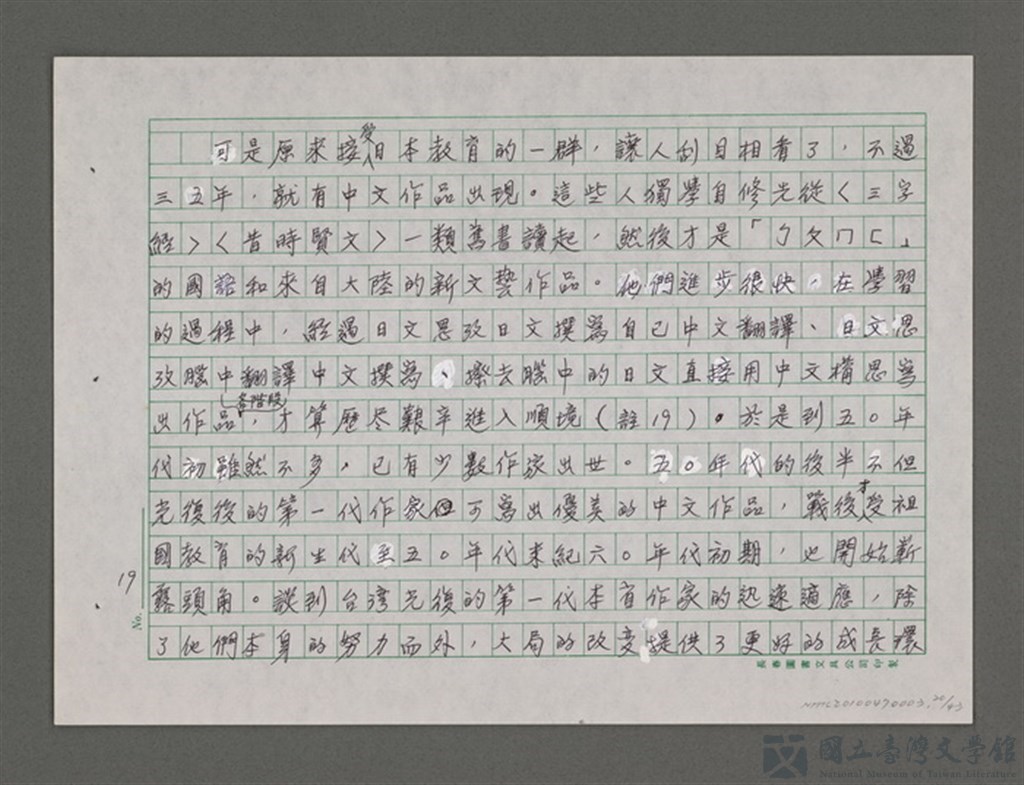 可是原來接受日本教育的一群，讓人刮目相看了，不過
三五年，就有中文作品出現。這些人獨學自修先從〈三字
經〉〈昔時賢文〉一類舊書讀起，然後才是「ㄅㄆㄇㄈ」
的國語和來自大陸的新文藝作品。他們進步很快，在學習
的過程中，經過日文思攷日文撰寫自己中文翻譯、日文思
攷腦中翻譯中文撰寫、擦去腦中的日文直接用中文構思寫
出作品各階段，才算歷尽艱辛進入順境（註19）。於是到五〇年
代初雖然不多，已有少數作家出世。五〇年代的後半不但
光復後的第一代作家但可寫出優美的中文作品，戰後才受祖
國教育的新生代至五〇年代末紀六〇年代初期，也開始嶄
露頭角。談到台湾光復後的第一代本省作家的迅速適應，除
了他們本身的努力而外，大局的改変提供了更好的成長環
No. 19
長春圖書文具公司印製
NMTL20100470003 20/43
國立臺灣文學館
National Museum of Taiwan Literature